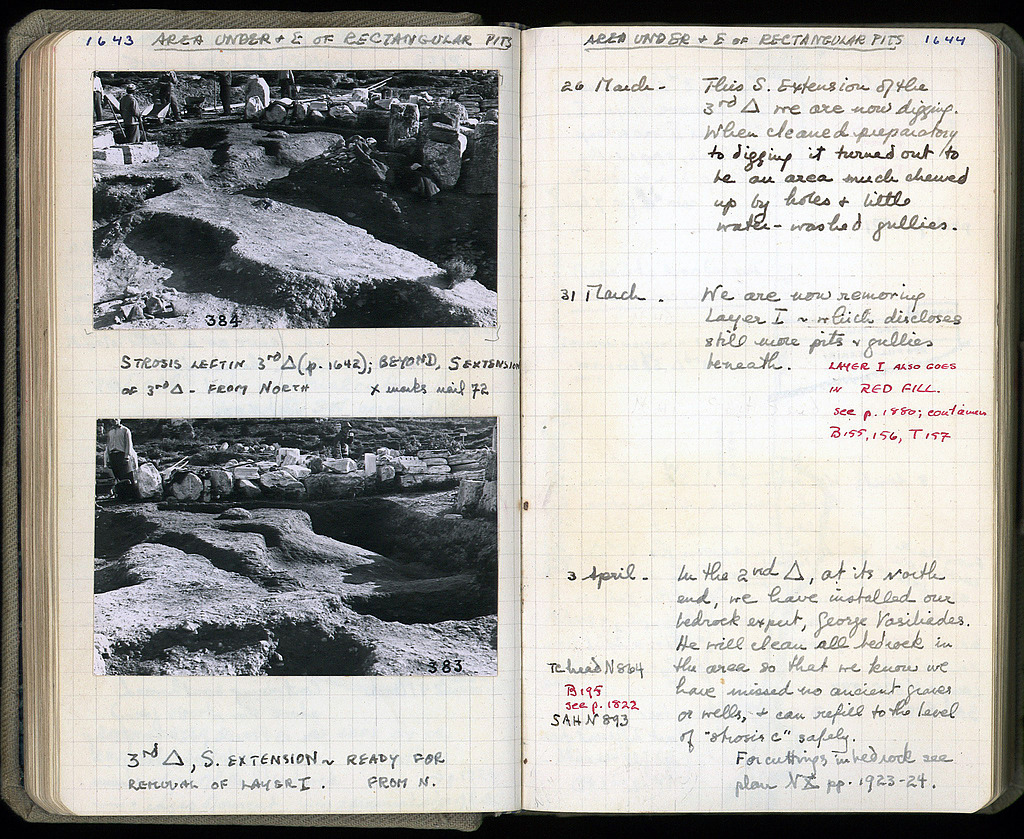 1643 AREA UNDER + E OF RECTANGULAR PITS
384
STROSIS LEFT IN 3rd Δ (p. 1642); BEYOND, S EXTENSION
OF 3rd Δ - FROM NORTH x marks nail 72
383
3rd Δ, S. EXTENSION ~ READY FOR
REMOVAL OF LAYER I. FROM N.
AREA UNDER + E OF RECTANGULAR PITS 1644
26 March - This S. Extension of the
3rd Δ we are now digging.
When cleaned preparatory
to digging it turned out to
be an area much chewed
up by holes + little
water-washed gullies.
31 March. We are now removing
Layer I ~ which discloses
still more pits + gullies
beneath.
LAYER I ALSO GOES
IN RED FILL.
see p. 1880; contains
B155, 156, T 157
3 April - In the 2nd Δ, at its North
end, we have installed our
bedrock expert, George Vasiliades.
He will clean all bedrock in
the area so that we know we
have missed no ancient graves
or wells, + can refill to the level
of "strosis c" safely.
For cuttings in bedrock see
plan NX pp. 1923-24.
TC head N 864
B195
see p. 1822
SAH N 893